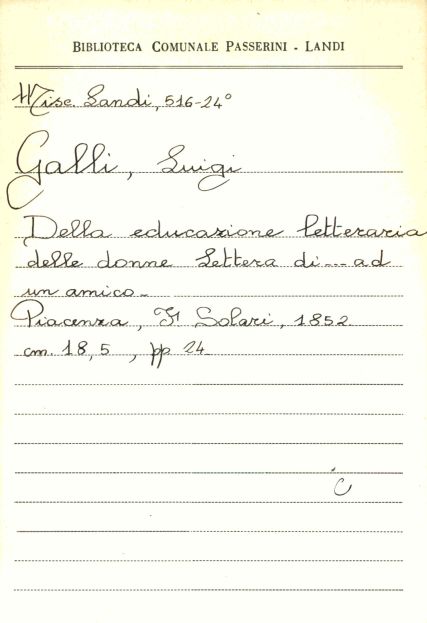 BIBLIOTECA COMUNALE PASSERINI - LANDI
Misc. Landi, 516-24°
Galli, Luigi
Della educazione letteraria
delle donne Lettera di --- ad
un amico -
Piacenza, F. Solari, 1852
cm. 18,5, pp 24
C